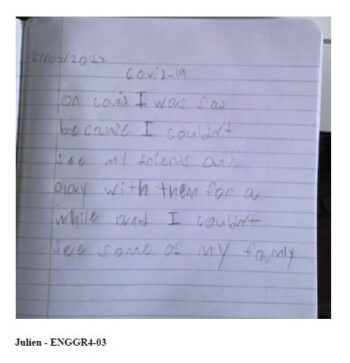 covid-19
on covid I was sad
because I couldn't
see my friends and
play with them for a
while and I couldn't
see some of my family
Julien - ENGGR4-03